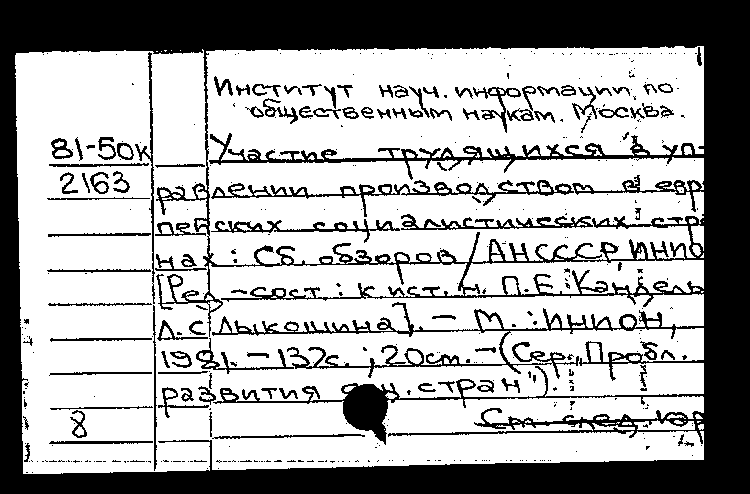 Институт науч. информации по
общественным наукам. Москва.
81-50к Участие трудящихся в уп-
2163 равлении производством в евро
пейских социалистических стра
нах : Сб. обзоров / АН СССР, ИНИО
[Ред.-сост. : к. ист. н. П.Е. Кандель
Л.С. Лыкошина]. - М. : ИНИОН,
1981. - 137с. ; 20см. - (Сер. „Пробл.
развития стран").
8 См. след. кар